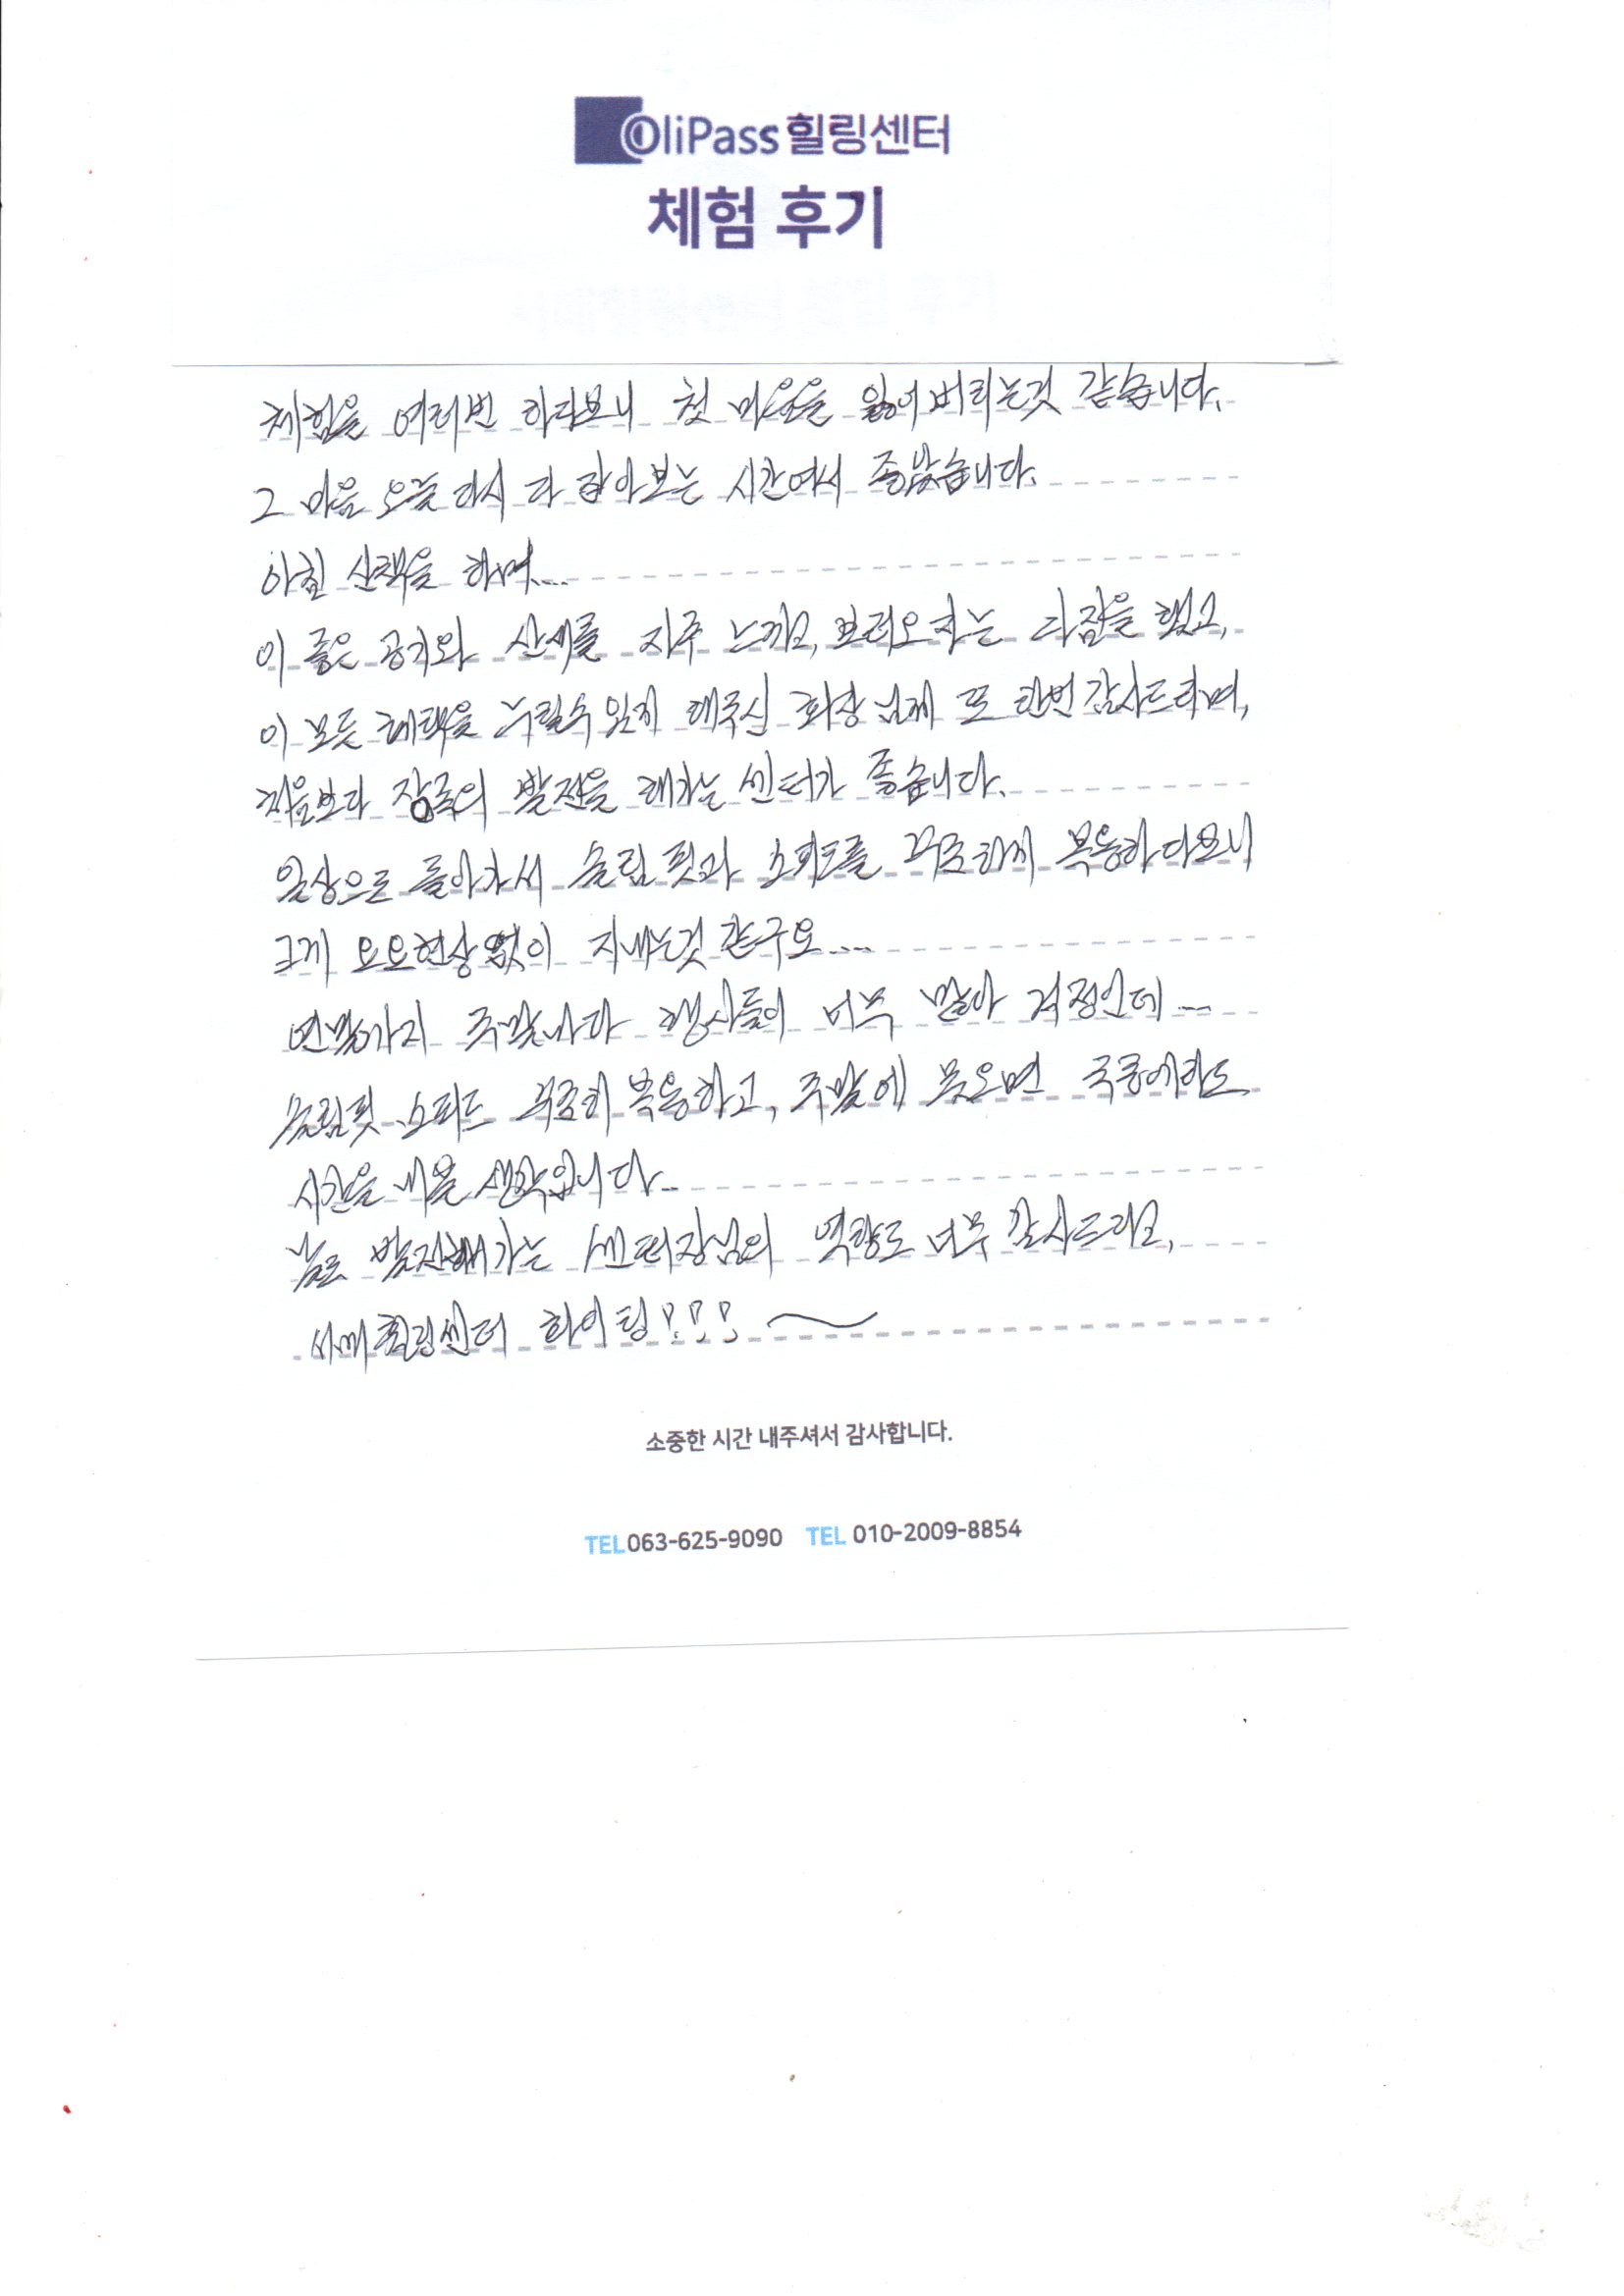 OliPass 힐링센터
체험 후기
체험을 여러번 하다보니 첫 마음을 잃어버리는것 같습니다.
그 마음 오늘 다시 다 잡아보는 시간여서 좋았습니다.
아침 산책을 하며....
이 좋은 공기와 산세를 자주 느끼고, 보러오자는 다짐을 했고,
이 모든 혜택을 누릴수 있게 해주신 회장님께 또 한번 감사드리며,
처음보다 장족의 발전을 해가는 센터가 좋습니다.
일상으로 돌아가서 슬림핏과 스피드를 꾸준하게 복용하다보니
크게 요요현상 없이 지내는것 같구요....
연말까지 주말마다 행사들이 너무 많아 걱정인데...
슬림핏.스피드 꾸준히 복용하고, 주말에 못오면 주중에라도
시간을 내볼 생각입니다..
날로 발전해가는 센터장님의 역량도 너무 감사드리고,
힐링센터 화이팅!!!~
소중한 시간 내주셔서 감사합니다.
TEL 063-625-9090 TEL 010-2009-8854